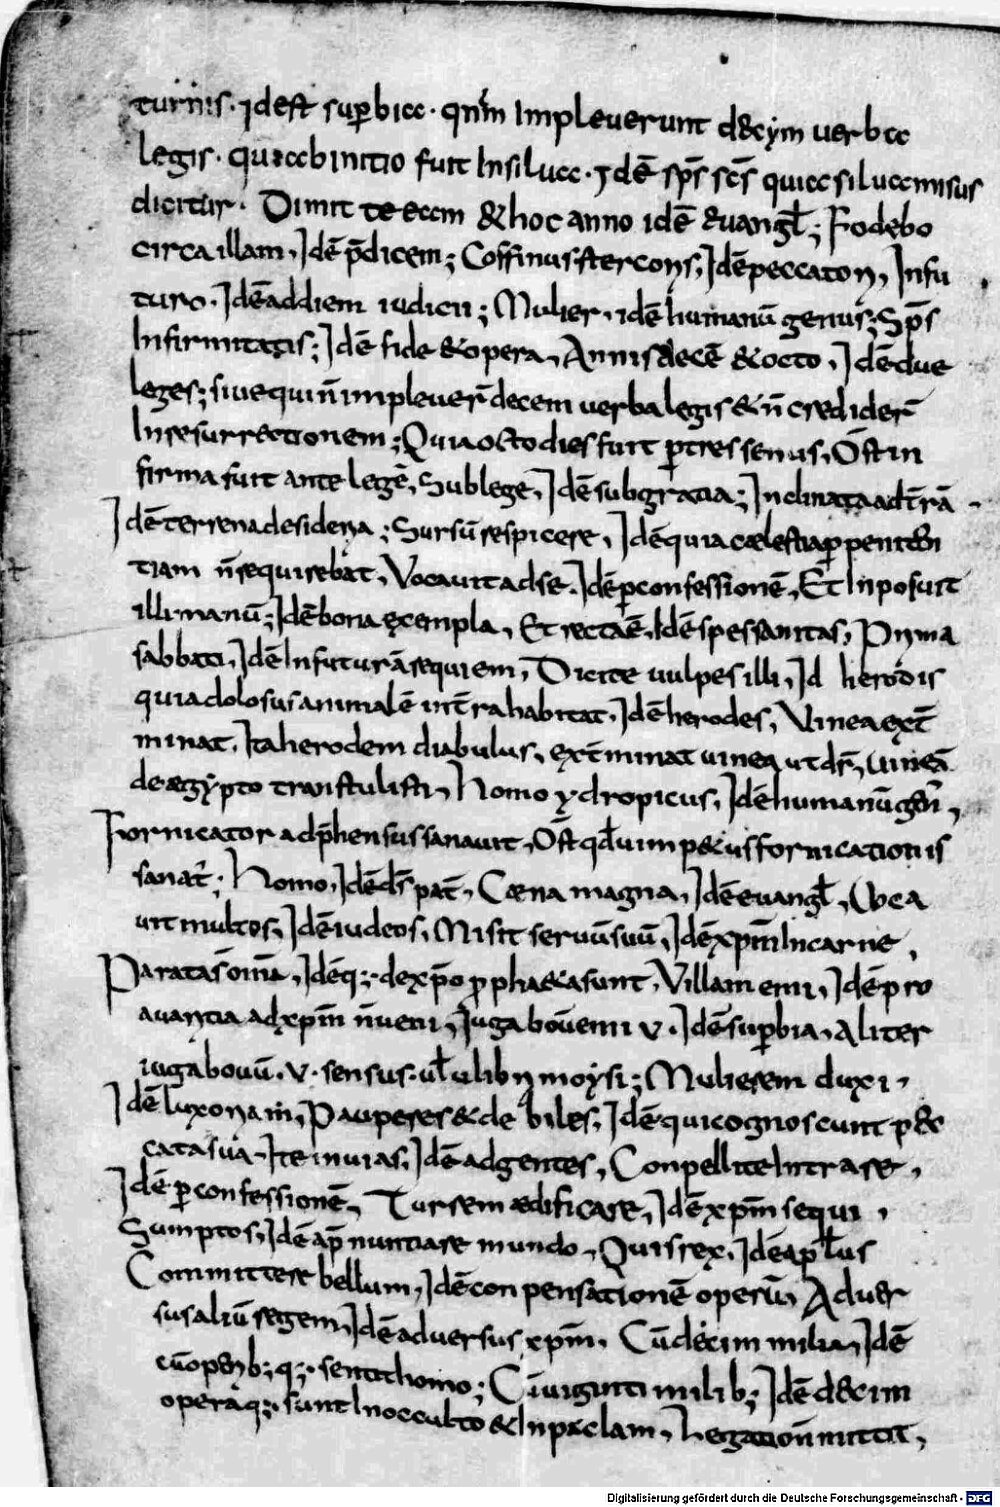 turris· idest superbiae· qnm Impleuerunt decim uerba
legis· quiabinitio fuit Insilua· idē sps scs quia siluamisus
dicitur· Dimitte eam & hoc anno idē euangl; Fodebo
circa illam, Idē pdicem; Coffinus stercoris, Idē peccatori, Infu
turo· Idē addiem iudicii; Mulier, idē humanū genus; Sps
Infirmitatis; Idē fide & opera, Annis decē & octo, Idē due
leges; siue qui ñ impleuer̄ decem uerba legis & ñ crediderē
Inresurrectionem; Quia octo dies fuit p tres senus, Ost in
firma fuit ante legē, Sub lege, Idē sub gratia; Inclinata ad trā
Idē terrena desideria; Sursū respicere, Idē quia caelestia p peniten
tiam ñ requirebat, Vocauit ad se· Idē p confessionē, Et Inposuit
illi manū; Idē bona exempla, Et rectaē, Idē spes sanitas, Prima
sabbati, Idē In futurā requiem, Dicite uulpes illi, Id herodis
quia dolosus animal ē int̄ra habitat, Idē herodes, Vinea ext̄
minat, Ita herodem diabulus, ext̄minat uinea ut dr̄, uineā
de aegypto transtulisti, Homo ydropicus, Idē humanū gen̄,
Fornicator adp̄hensus sanauit, Ost qd̄ uim p&us fornicationis
sanat̄; Homo, Idē ds̄ pat̄, Caena magna, Idē euangl̄, Uoca
uit multos, Idē iudeos, Misit seruū suū, Idē xpm̄ Incarne,
Parata s̄ om̄a, Idē q;· de xp̄o p pha&ata sunt, Villam emi, Idē pro
auaritia ad xpm̄ ñ ueni, Iuga boū emi v· Idē superbia, aliter
iuga bouū· v· sensus· ul̄ u libri moysi; Mulierem duxi,
Idē luxoriam, Pauperes & debiles, Idē qui cognoscunt pec
cata sua, Ite in uias, Idē ad gentes, Conpellite Intrare,
Idē p confessionē, Turrem aedificare, Idē xpm̄ sequi,
Sumptos, Idē ap̄ nuntiare mundo, Quis rex, Idē apl̄us
Committere bellum, Idē conpensationē operū, Aduer
sus aliū regem, Idē aduersus xpm̄, Cū decim milia, Idē
cū operib; q;· sentit homo; Cū uiginti milib; Idē decim
opera q;· sunt In occulto & In paclam, Legationū mittit,
Digitalisierung gefördert durch die Deutsche Forschungsgemeinschaft - DFG